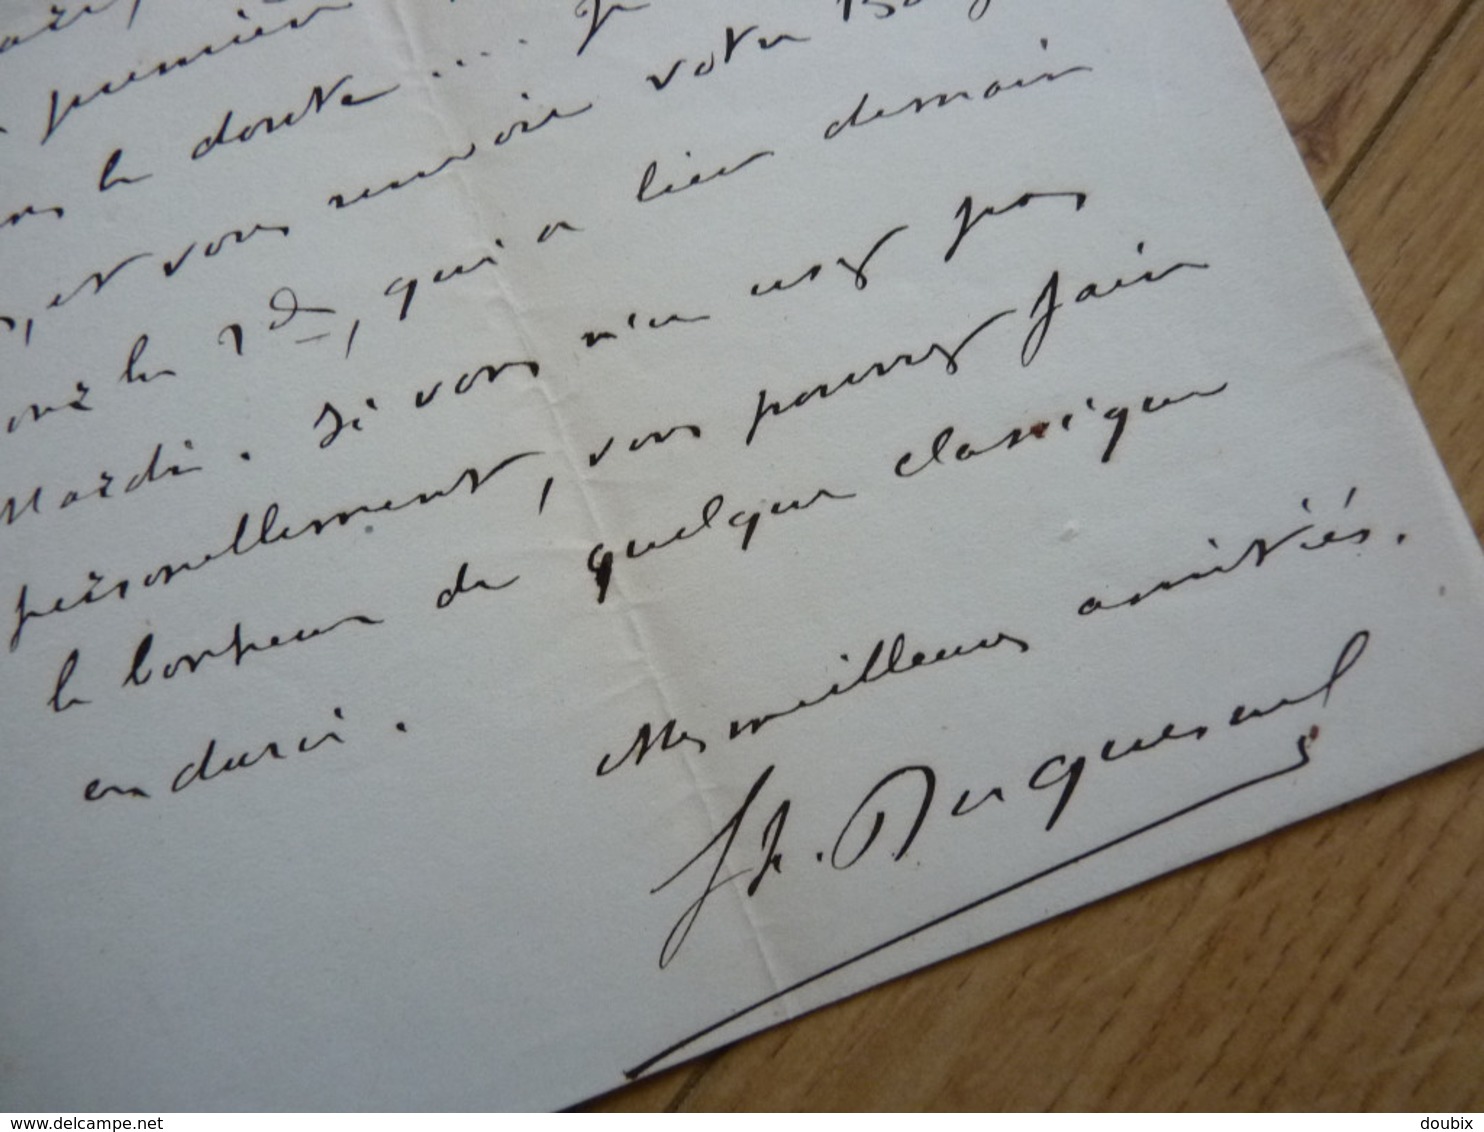 première
le doute ... Je
, et vous renvoie votre
le 2de, qui a lieu demain
Mardi. Si vous n'en usez pas
personellement, vous pourrez faire
le bonheur de quelque classique
endurci.
Mes meilleures amitiés.
Fk. Duquesnel
delcampe.net
doubix